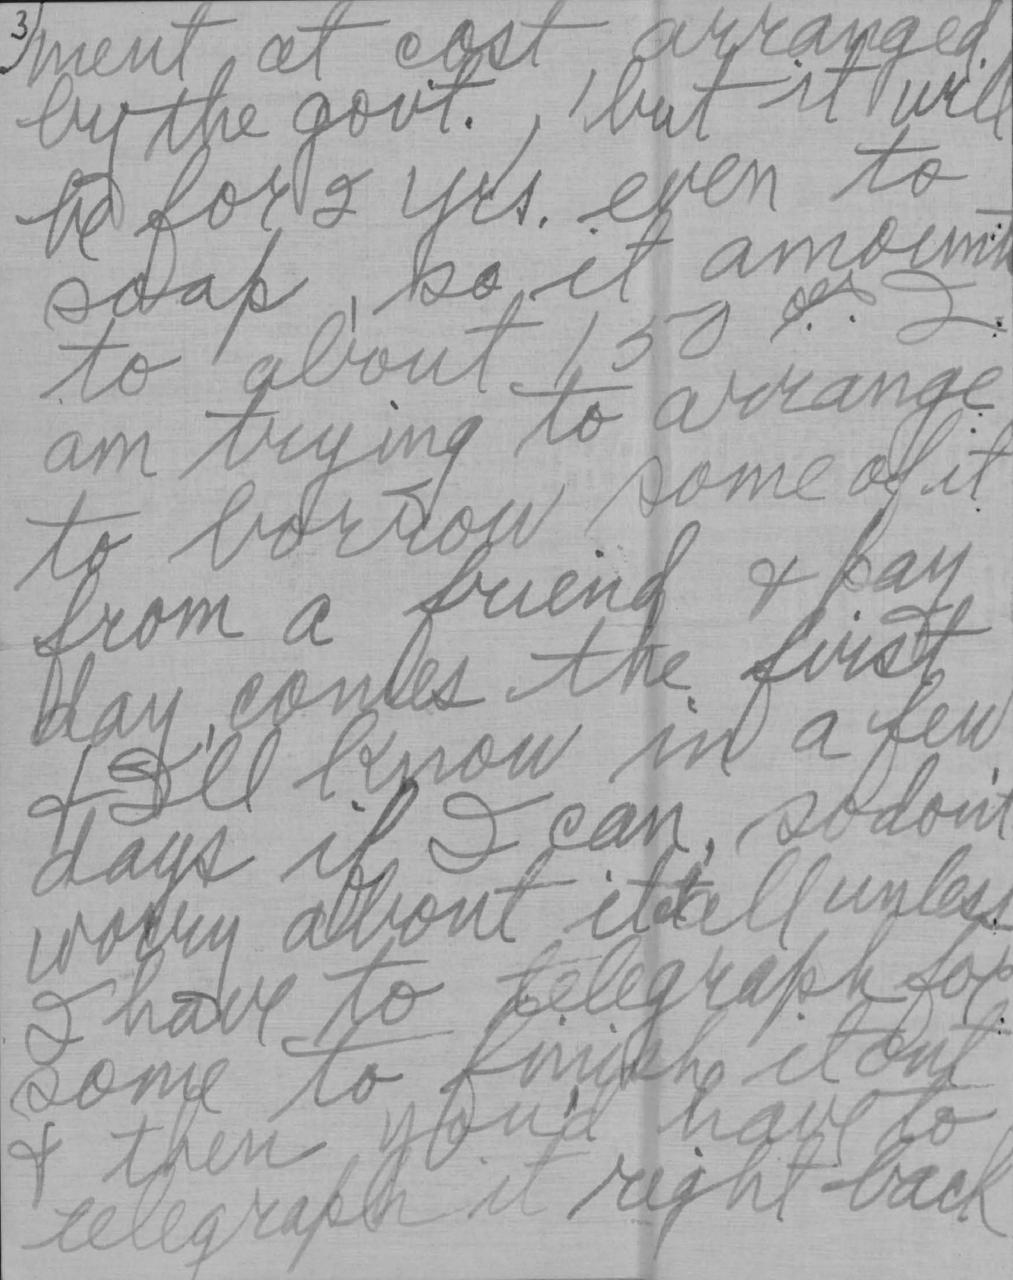 3)
ment, at cost, arranged
by the gov't., but it will
be for 2 yrs. even to
soap, so it amounts
to about 150 I
am trying to arrange
to borrow some of it
from a friend & pay
day comes the first
& I'll know in a few
days if I can, so don't
worry about it tall unless
I have to telegraph for
some to finish it out
& then you'd have to
telegraph it right back